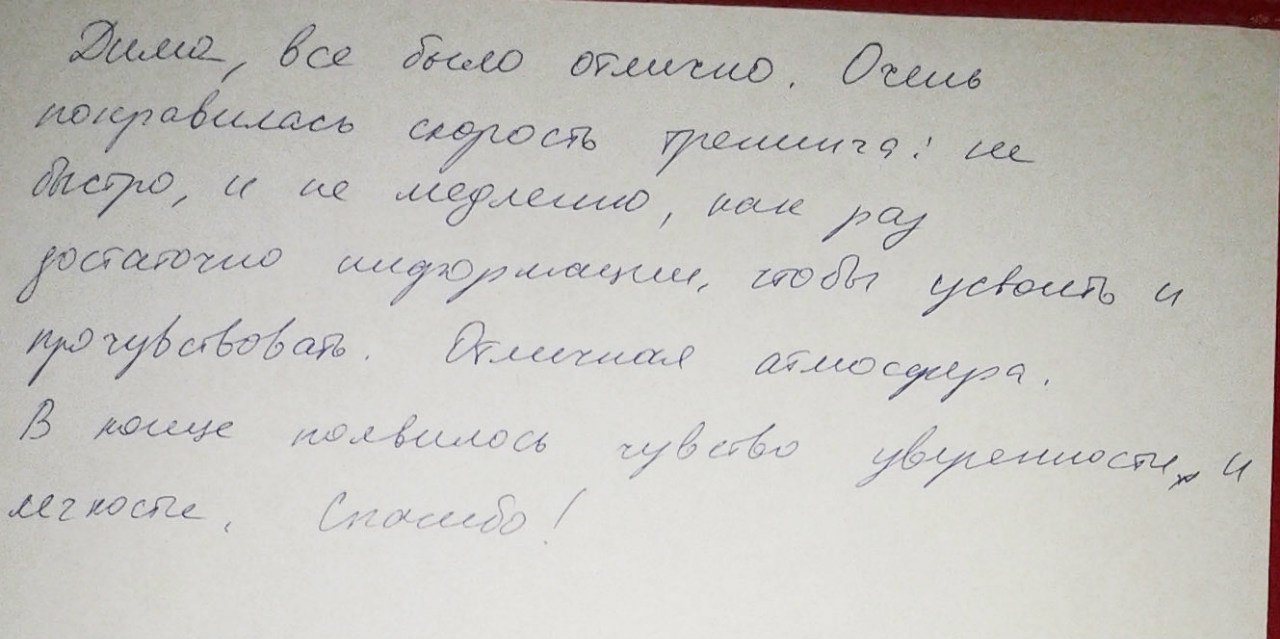 Дима, все было отлично. Очень
понравилась скорость тренинга: не
быстро, и не медленно, как раз
достаточно информации, чтобы усвоить и
прочувствовать. Отличная атмосфера.
В конце появилось чувство уверенности и
легкости. Спасибо!